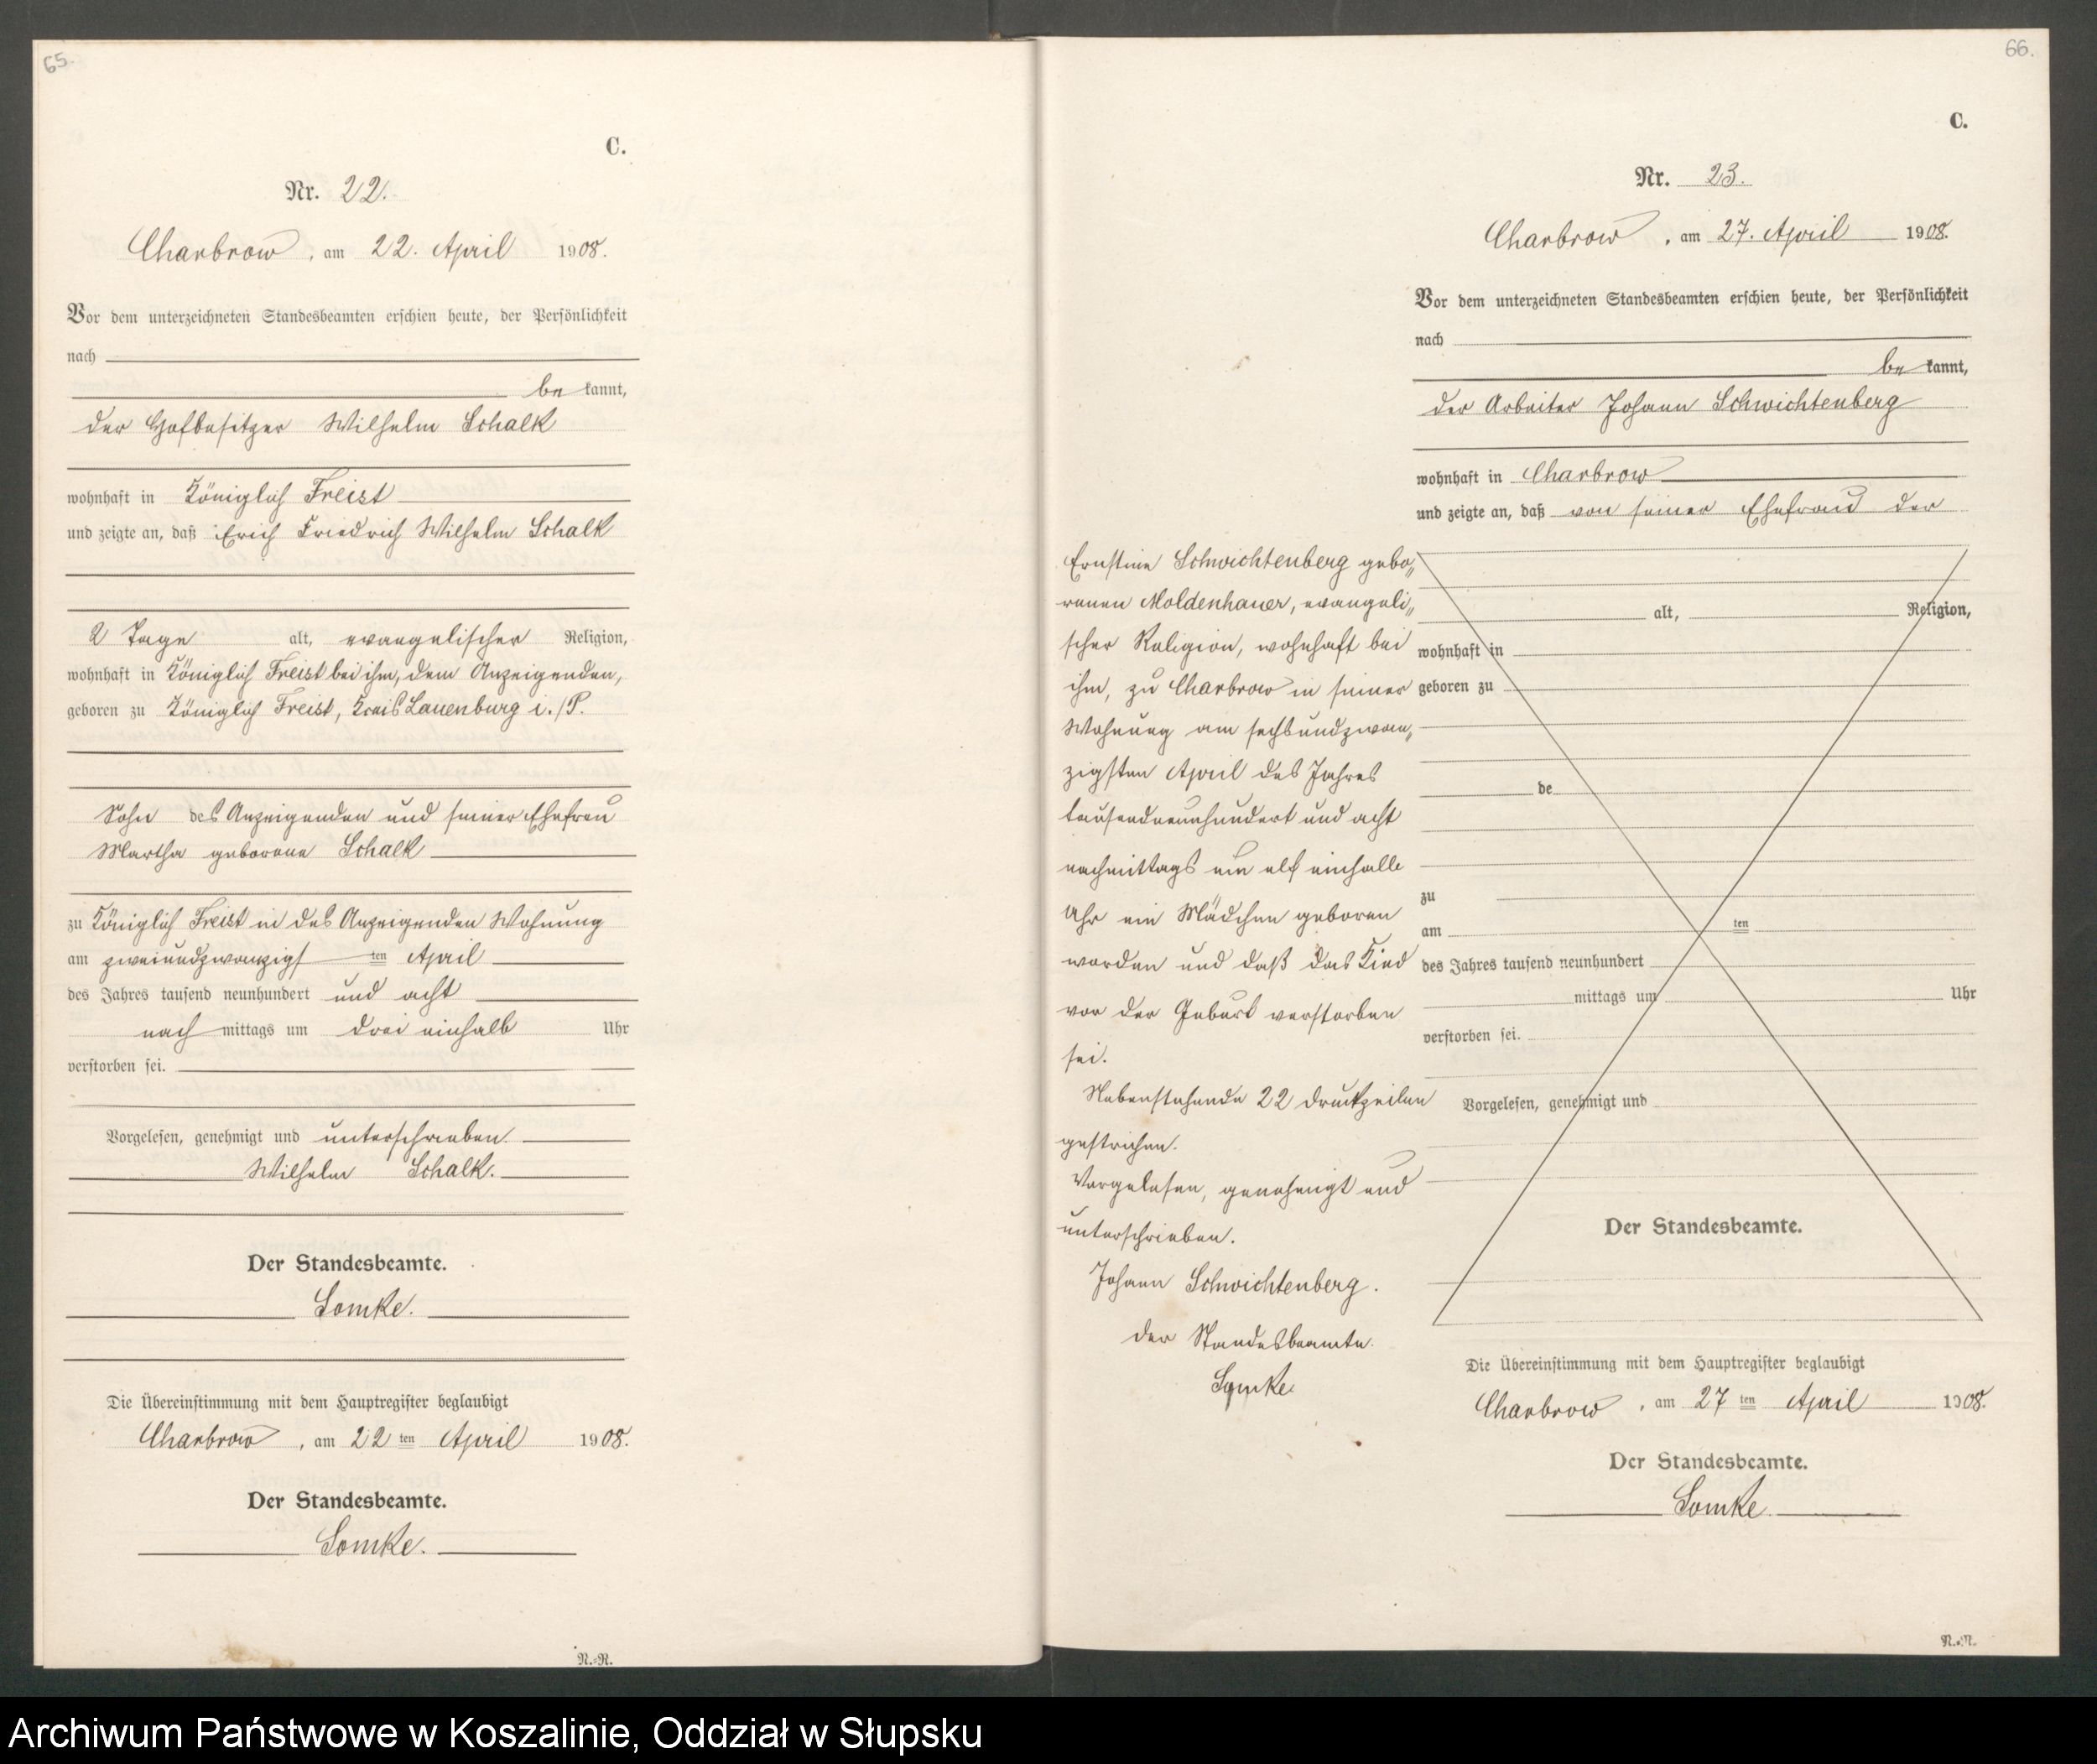 65.
C.
Nr. 22.
Charbrow, am 22. April 1908.
Vor dem unterzeichneten Standesbeamten erschien heute, der Persönlichkeit
nach
be kannt,
der Hofbesitzer Wilhelm Schalk
wohnhaft in Königlich Freist
und zeigte an, daß Erich Friedrich Wilhelm Schalk
2 Tage alt, evangelischer Religion,
wohnhaft in Königlich Freist bei ihm, dem Anzeigenden,
geboren zu Königlich Freist, Kreis Lauenburg i./P.
Sohn des Anzeigenden und seiner Ehefrau
Martha geborene Schalk
zu Königlich Freist in des Anzeigenden Wohnung
am zweiundzwanzigsten April
des Jahres tausend neunhundert und acht
nach mittags um drei einhalb Uhr
verstorben sei.
Vorgelesen, genehmigt und unterschrieben.
Wilhelm Schalk.
Der Standesbeamte.
Lomke.
Die Übereinstimmung mit dem Hauptregister beglaubigt
Charbrow, am 22 ten April 1908.
Der Standesbeamte.
Lomke.
N.-R.
66.
C.
Nr. 23.
Charbrow, am 27. April 1908.
Vor dem unterzeichneten Standesbeamten erschien heute, der Persönlichkeit
nach
be kannt,
der Arbeiter Johann Schwichtenberg
wohnhaft in Charbrow
und zeigte an, daß von seiner Ehefrau der
Ernstine Schwichtenberg gebo„
renen Moldenhauer, evangeli„
scher Religion, wohnhaft bei
ihm, zu Charbrow in seiner
Wohnung am sechsundzwan„
zigsten April des Jahres
tausendneunhundert und acht
nachmittags um elf einhalb
Uhr ein Mädchen geboren
worden und daß das Kind
vor der Geburt verstorben
sei.
Nebenstehende 22 Druckzeilen
gestrichen.
Vorgelesen, genehmigt und
unterschrieben.
Johann Schwichtenberg.
Der Standesbeamte.
Lomke.
alt, Religion,
wohnhaft in
geboren zu
de
zu
am ten
des Jahres tausend neunhundert
mittags um Uhr
verstorben sei.
Vorgelesen, genehmigt und
Der Standesbeamte.
Die Übereinstimmung mit dem Hauptregister beglaubigt
Charbrow, am 27 ten April 1908.
Der Standesbeamte.
Lomke.
N.-R.
Archiwum Państwowe w Koszalinie, Oddział w Słupsku